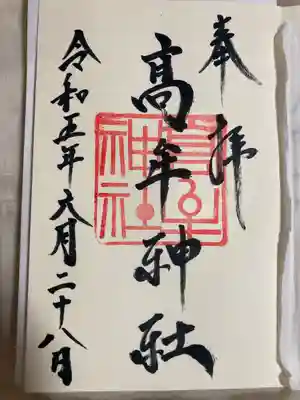 奉拝
高牟神社
令和五年六月二十八日